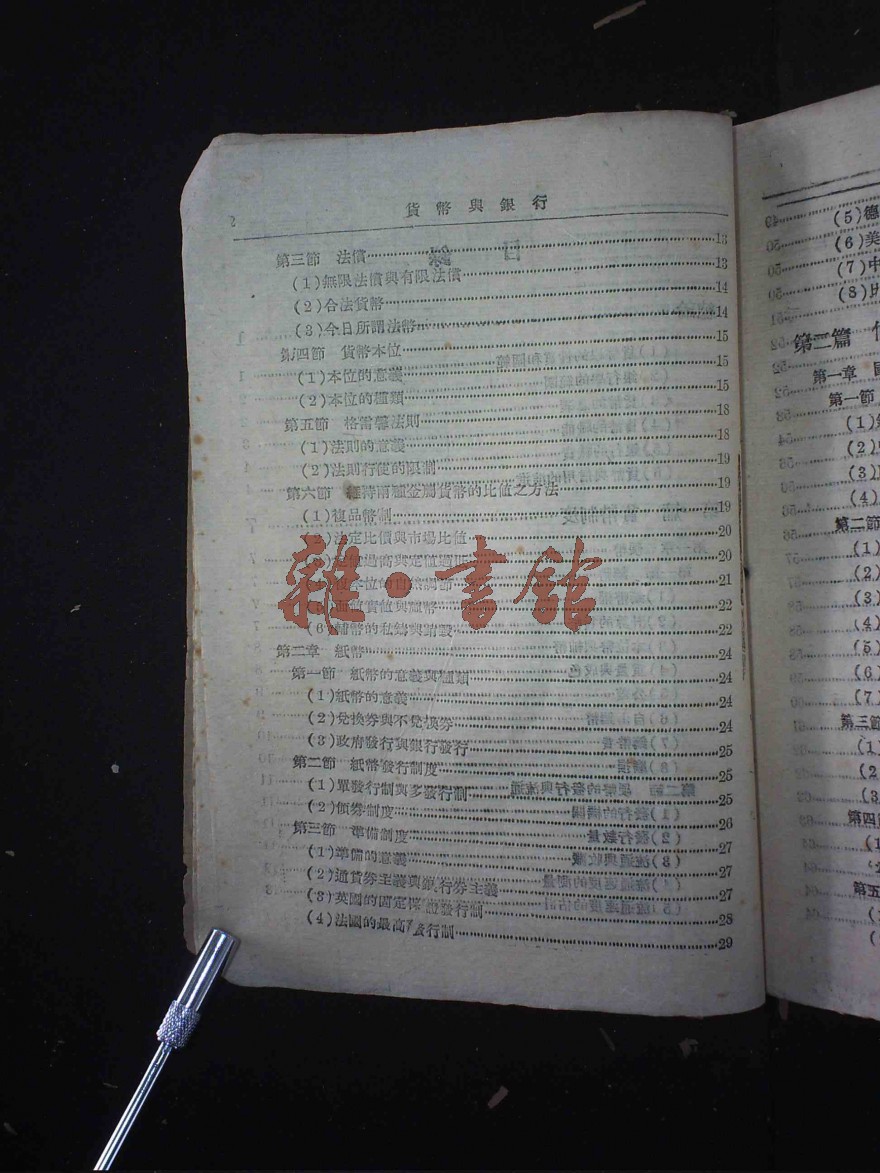 2
貨幣與銀行
第三節 法償 13
(1)無限法償與有限法償 13
(2)合法貨幣 14
(3)今日所謂法幣 14
第四節 貨幣本位 15
(1)本位的意義 15
(2)本位的種類 15
第五節 格雷襄法則 18
(1)法則的意義 18
(2)法則行使的限制 19
第六節 維持兩種金屬貨幣的比值之方法 19
(1)複品幣制 19
(2)法定比價與市場比值 20
定值過高與定值過低 20
複本位的自然調節 21
面值實值與輔幣 22
(6)輔幣的私鑄與銷毀 22
第二章 紙幣 24
第一節 紙幣的意義與種類 24
(1)紙幣的意義 24
(2)兌換券與不兌換券 24
(3)政府發行與銀行發行 25
第二節 紙幣發行制度 25
(1)單發行制與多發行制 25
(2)領券制度 26
第三節 準備制度 27
(1)準備的意義 27
(2)通貨券主義與銀行券主義 27
(3)英國的固定保證發行制 28
(4)法國的最高發行制 29
雜·書館
49 (5)德
50 (6)美
50 (7)中
50 (8)比
51
52 第二篇
52 第一章
第一節
(1)
(2)
(3)
(4)
第二節
(1)
(2)
(3)
(4)
(5)
(6)
(7)
第三節
(1)
(2)
(3)
第四
(1
第五